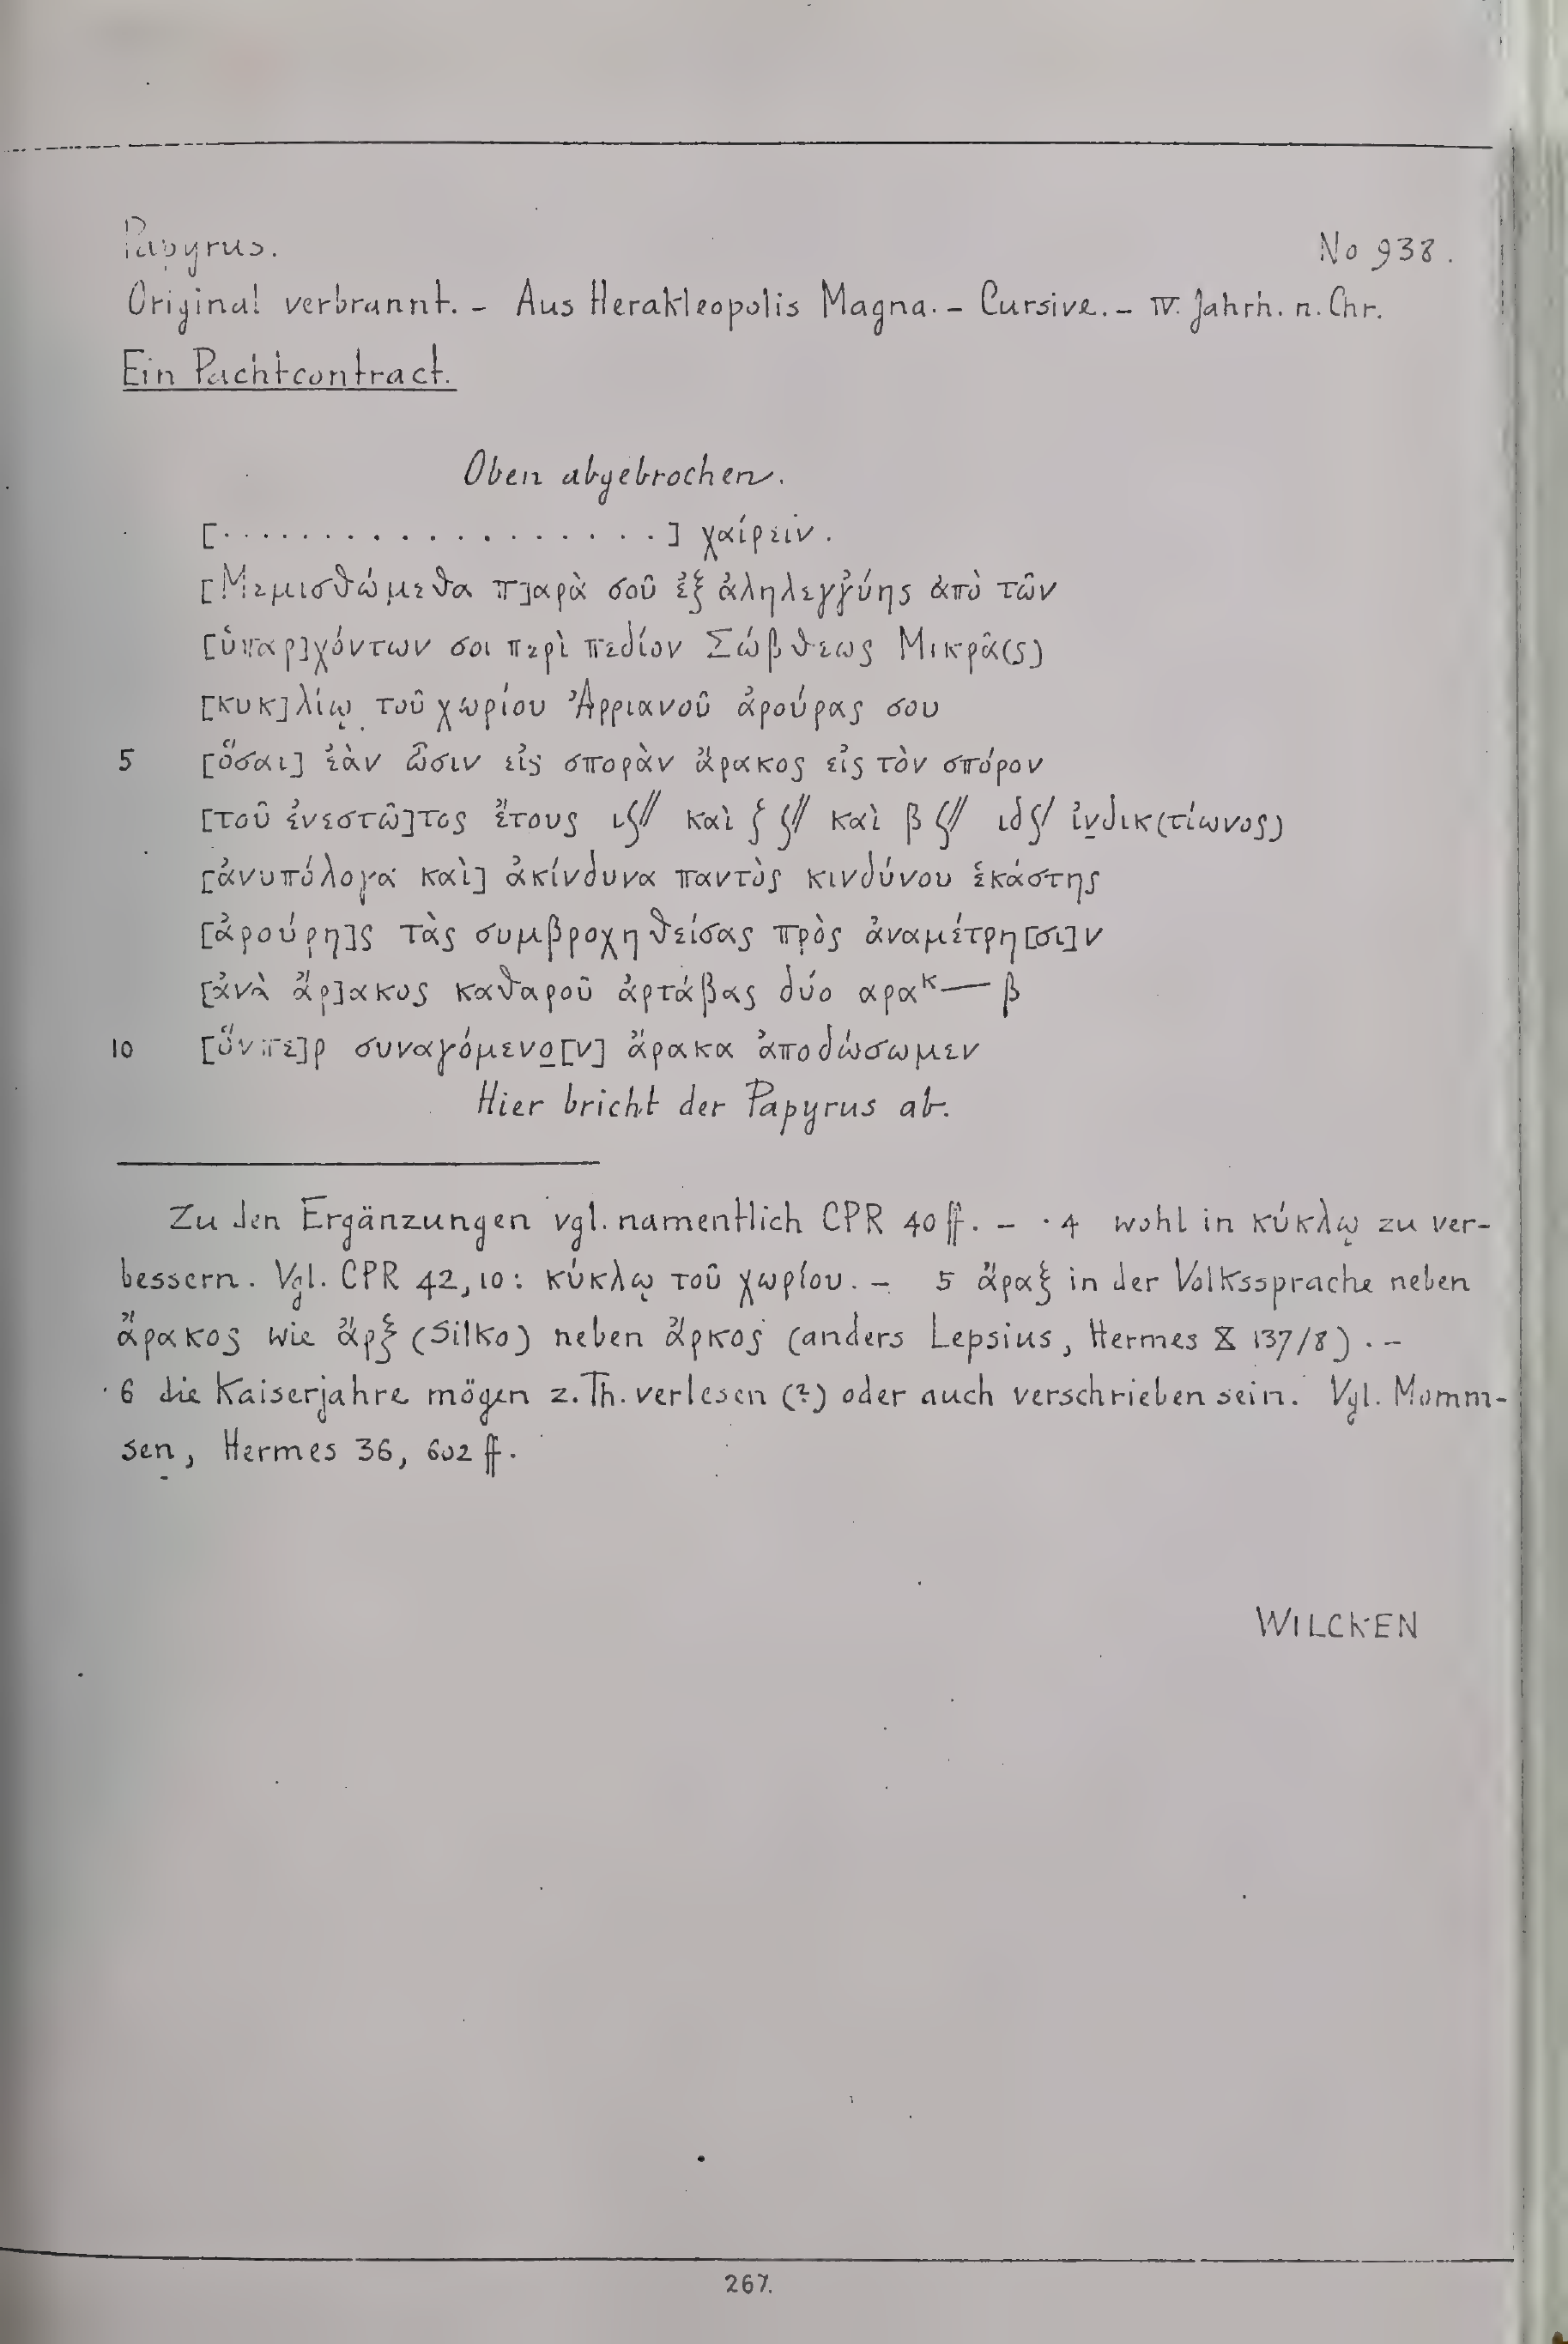 Papyrus. No 938.
Original verbrannt. – Aus Herakleopolis Magna. – Cursive. – IV. Jahrh. n. Chr.
Ein Pachtcontract.
Oben abgebrochen.
[. . . . . . . . . . . . . . . . . . .] χαίρειν.
[Μεμισθώμεθα π]αρὰ σοῦ ἐξ ἀληλεγγύης ἀπὸ τῶν
[ὑπαρ]χόντων σοι περὶ πεδίον Σώβθεως Μικρᾶ(ς)
[κυκ]λίῳ τοῦ χωρίου Ἀρριανοῦ ἀρούρας σου
5 [ὅσαι] ἐὰν ὦσιν εἰς σπορὰν ἄρακος εἰς τὸν σπόρον
[τοῦ ἐνεστῶ]τος ἔτους ιϛ// καὶ ζ ϛ// καὶ β ϛ// ιδϛ/ ἰν̣δικ(τίωνος)
[ἀνυπόλογα καὶ] ἀκίνδυνα παντὸς κινδύνου ἑκάστης
[ἀρούρη]ς τὰς συμβροχηθείσας πρὸς ἀναμέτρη[σι]ν
[ἀνὰ ἄρ]ακος καθαροῦ ἀρτάβας δύο αρα^κ— β
10 [ὅνπε]ρ συναγόμενο̣[ν] ἄρακα ἀποδώσωμεν
Hier bricht der Papyrus ab.
Zu den Ergänzungen vgl. namentlich CPR 40 ff. – · 4 wohl in κύκλῳ zu ver-
bessern. Vgl. CPR 42, 10: κύκλῳ τοῦ χωρίου. – 5 ἄραξ in der Volkssprache neben
ἄρακος wie ἄρξ (Silko) neben ἄρκος (anders Lepsius, Hermes X 137/8). –
6 die Kaiserjahre mögen z. Th. verlesen (?) oder auch verschrieben sein. Vgl. Momm-
sen, Hermes 36, 602 ff.
WILCKEN
267.